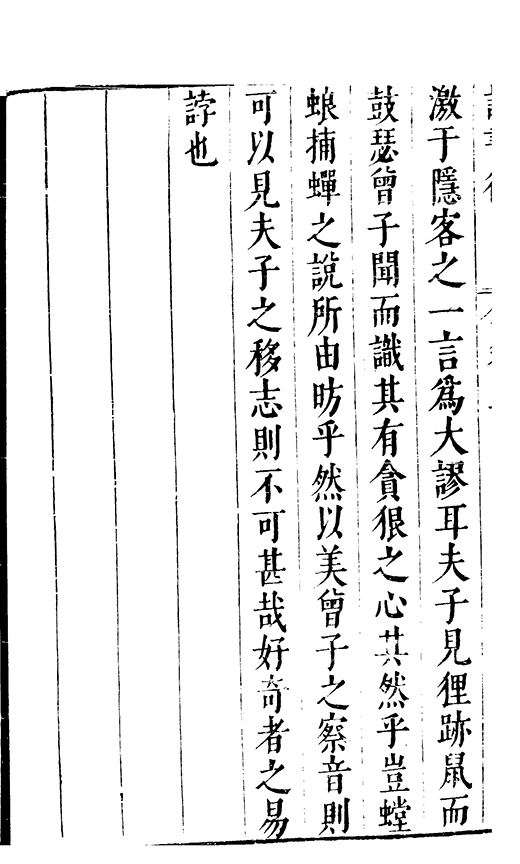 激于隱客之一言爲大謬耳夫子見狸跡鼠而
鼓瑟曾子聞而識其有貪狠之心其然乎豈螳
蜋捕蟬之說所由昉乎然以美曾子之察音則
可以見夫子之移志則不可甚哉好奇者之易
誖也